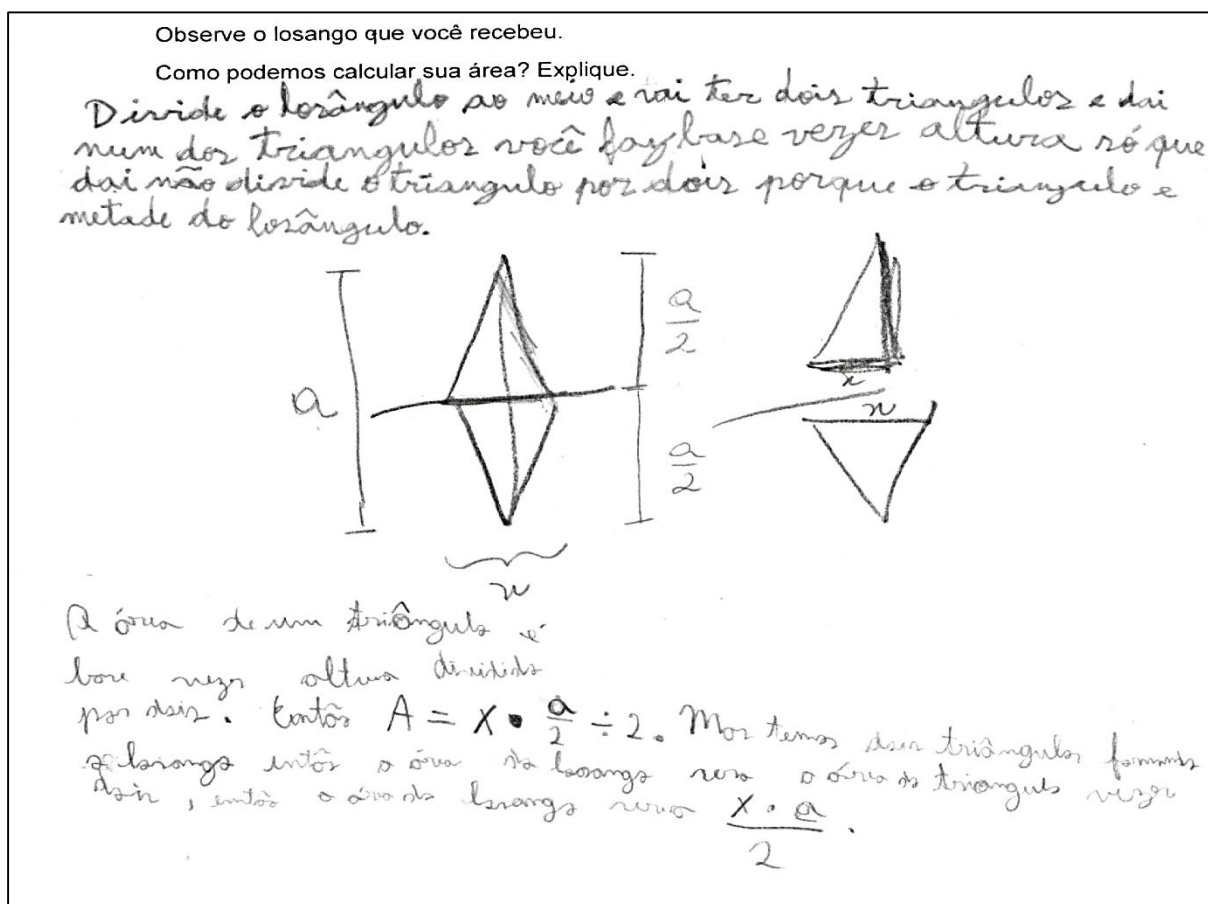 Observe o losango que você recebeu.
Como podemos calcular sua área? Explique.
Divide o losângulo ao meio e vai ter dois triangulos e dai
num dos triangulos você faz base vezes altura só que
dai não divide o triangulo por dois porque o triangulo e
metade do losângulo.
a
a/2
a/2
x
x
x
A área de um triângulo é
base vezes altura dividido
por dois. Então A = x • a/2 ÷ 2. Mas temos dois triângulos formando
o losango então a área do losango sera a área do triangulo vezes
dois, então a área do losango sera x • a / 2.